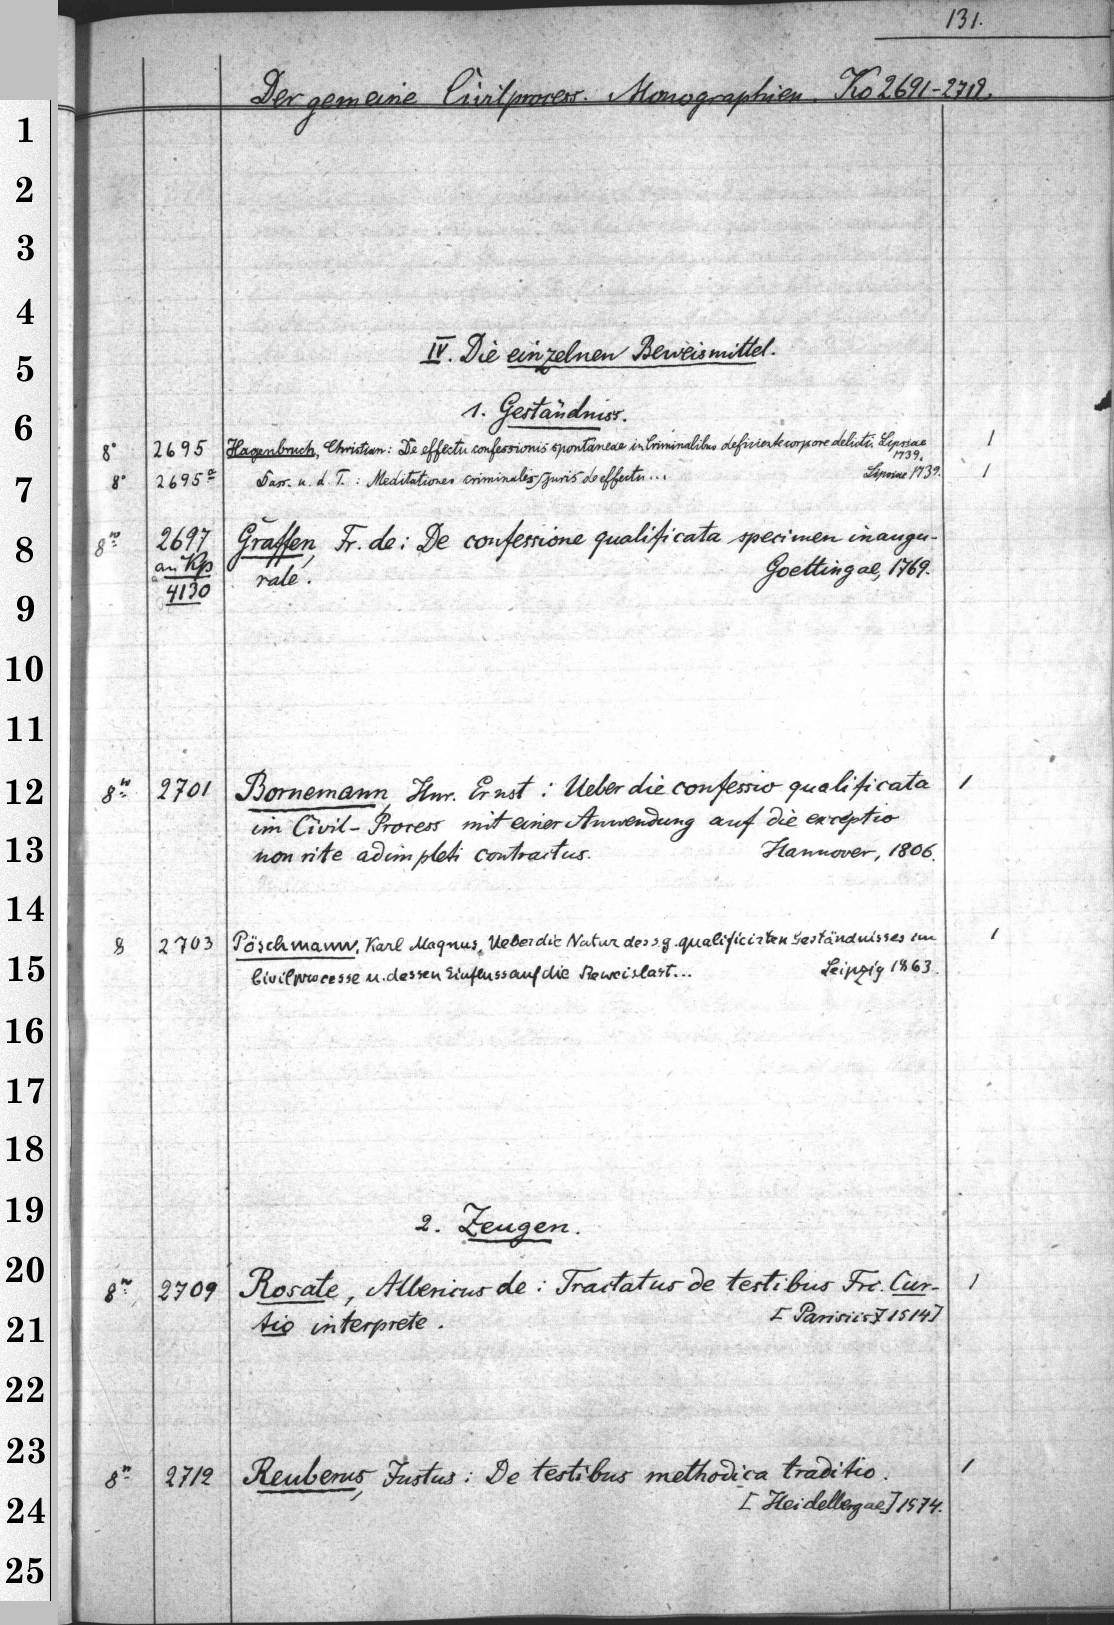 131.
Der gemeine Civilprocess. Monographien. Ko 2691-2712.
1
2
3
4
IV. Die einzelnen Beweismittel.
5
1. Geständniss.
6
8° 2695 Hagenbruch, Christian: De effectu confessionis spontaneae in Criminalibus deficiente corpore delicti. Lipsiae 1
1739.
8° 2695a Dass. u. d. T.: Meditationes criminales juris de effectu... Lipsiae 1739. 1
7
8no 2697 Graffen, Fr. de: De confessione qualificata specimen inaugu-
8
an Kp rale. Goettingae, 1769.
4130
9
10
11
8no 2701 Bornemann, Hnr. Ernst: Ueber die confessio qualificata 1
12
im Civil-Process mit einer Anwendung auf die exceptio
non rite adimpleti contractus. Hannover, 1806.
13
14
8 2703 Pöschmann, Karl Magnus, Ueber die Natur des s.g. qualificirten Geständnisses im 1
Civilprocesse u. dessen Einfluss auf die Beweislast... Leipzig 1863.
15
16
17
18
19
2. Zeugen.
20
8no 2709 Rosate, Albericus de: Tractatus de testibus Frc. Cur- 1
tio interprete. [Parisiis] 1514]
21
22
23
8no 2712 Reuberus, Justus: De testibus methodica traditio. 1
[Heidelbergae] 1574.
24
25